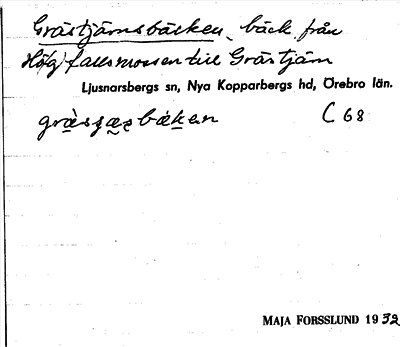 Gråstjärnsbäcken, bäck från
Hö(g)fallsmossen till Gråstjärn
Ljusnarsbergs sn, Nya Kopparbergs hd, Örebro län.
C 68
MAJA FORSSLUND 1932